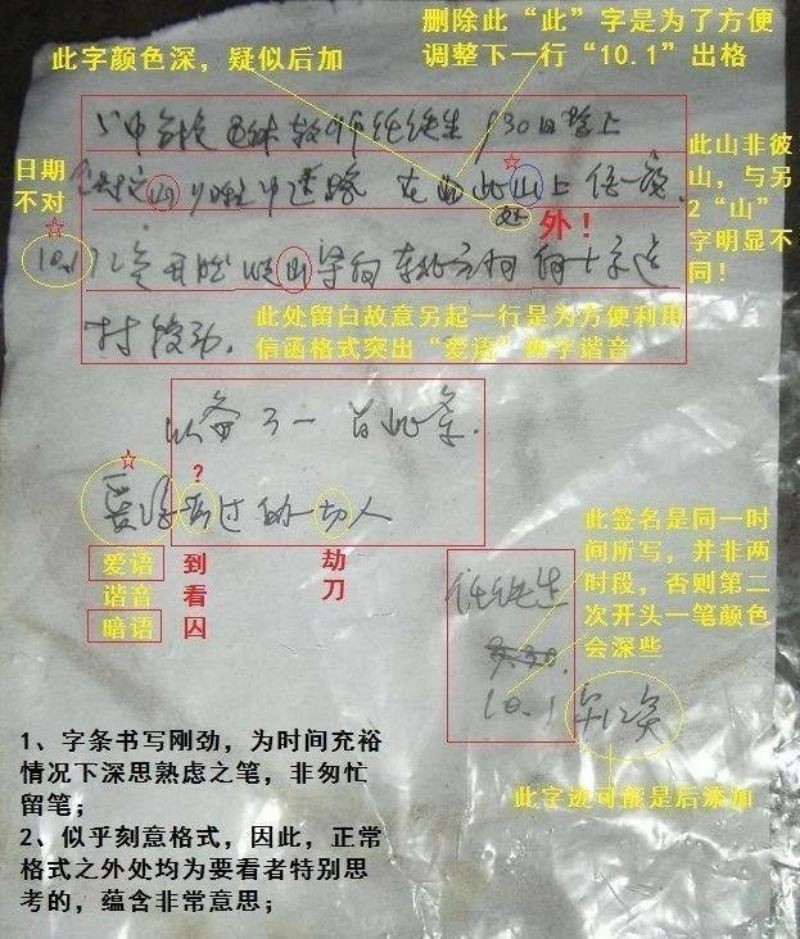 删除此“此”字是为了方便
调整下一行“10.1”出格
此字颜色深，疑似后加
退休教师任铁生 9.30日晚上
日期
不对
山 中迷路 在此山上 一夜.
处
外！
此山非彼
山，与另
2“山”
字明显不
同！
10.1 12点开始从山梁向东北方向向十字道
村移动.
此处留白故意另起一行是为方便利用
信函格式突出“爱语”两字谐音
以备万一 留此条.
？
看过的一切人
爱语
谐音
暗语
到
看
囚
劫
刀
此签名是同一时
间所写，并非两
时段，否则第二
次开头一笔颜色
会深些
任铁生
10.1 早12点
此字迹可能是后添加
1、字条书写刚劲，为时间充裕
情况下深思熟虑之笔，非匆忙
留笔；
2、似乎刻意格式，因此，正常
格式之外处均为要看者特别思
考的，蕴含非常意思；